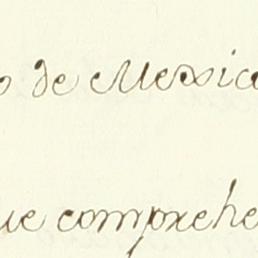 o de Mexico
ue comprehe